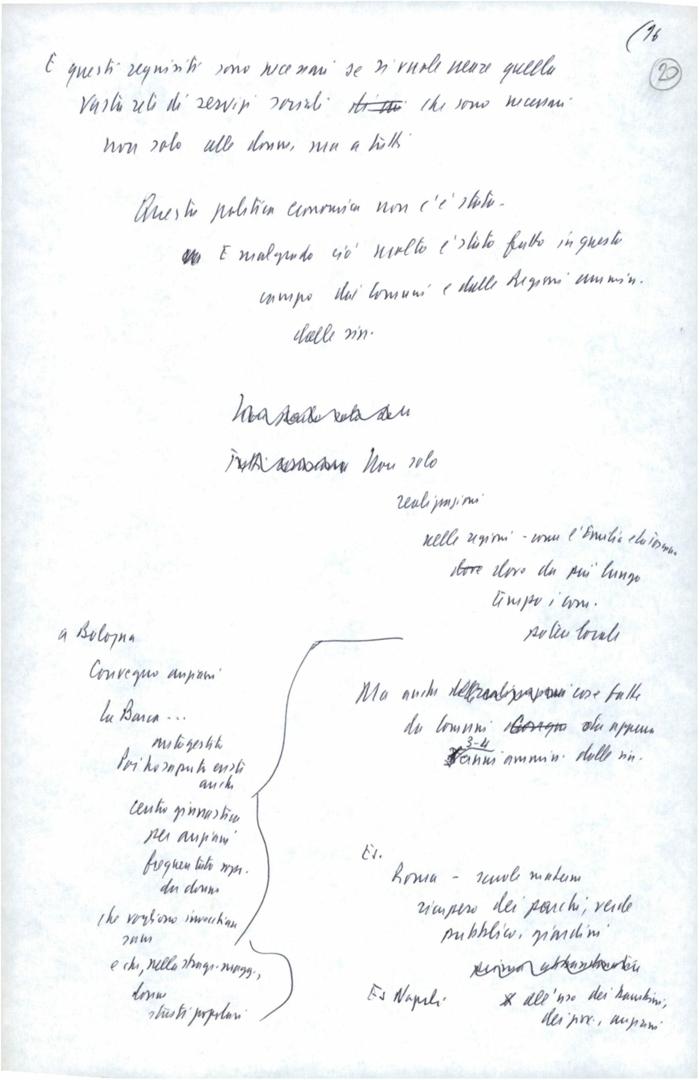 (16
20
E questi requisiti sono necessari se si vuole quella
vasta rete di servizi sociali che sono necessari
non solo alle donne, ma a tutti
Questa politica economica non c'è stata.
E malgrado ciò molto è stato fatto in questo
campo dai Comuni e dalle Regioni ammin.
dalle sin.
Non solo
realizzazioni
nelle regioni - come l'Emilia e la Toscana
dove da più lungo
tempo i com.
potere locale
a Bologna
Convegno anziani
La Barca ...
autogestito
Poi ho saputo
anche
centro ginnastica
per anziani
frequentato sopr.
da donne
che vogliono invecchiare
sane
e che, nella stragr. magg.,
donne
Ma anche cose fatte
da Comuni da appena
3-4
anni ammin. dalle sin.
Es.
Roma - scuole materne
recupero dei parchi, verde
pubblico, giardini
Es Napoli
all'uso dei bambini,
dei giov., anziani